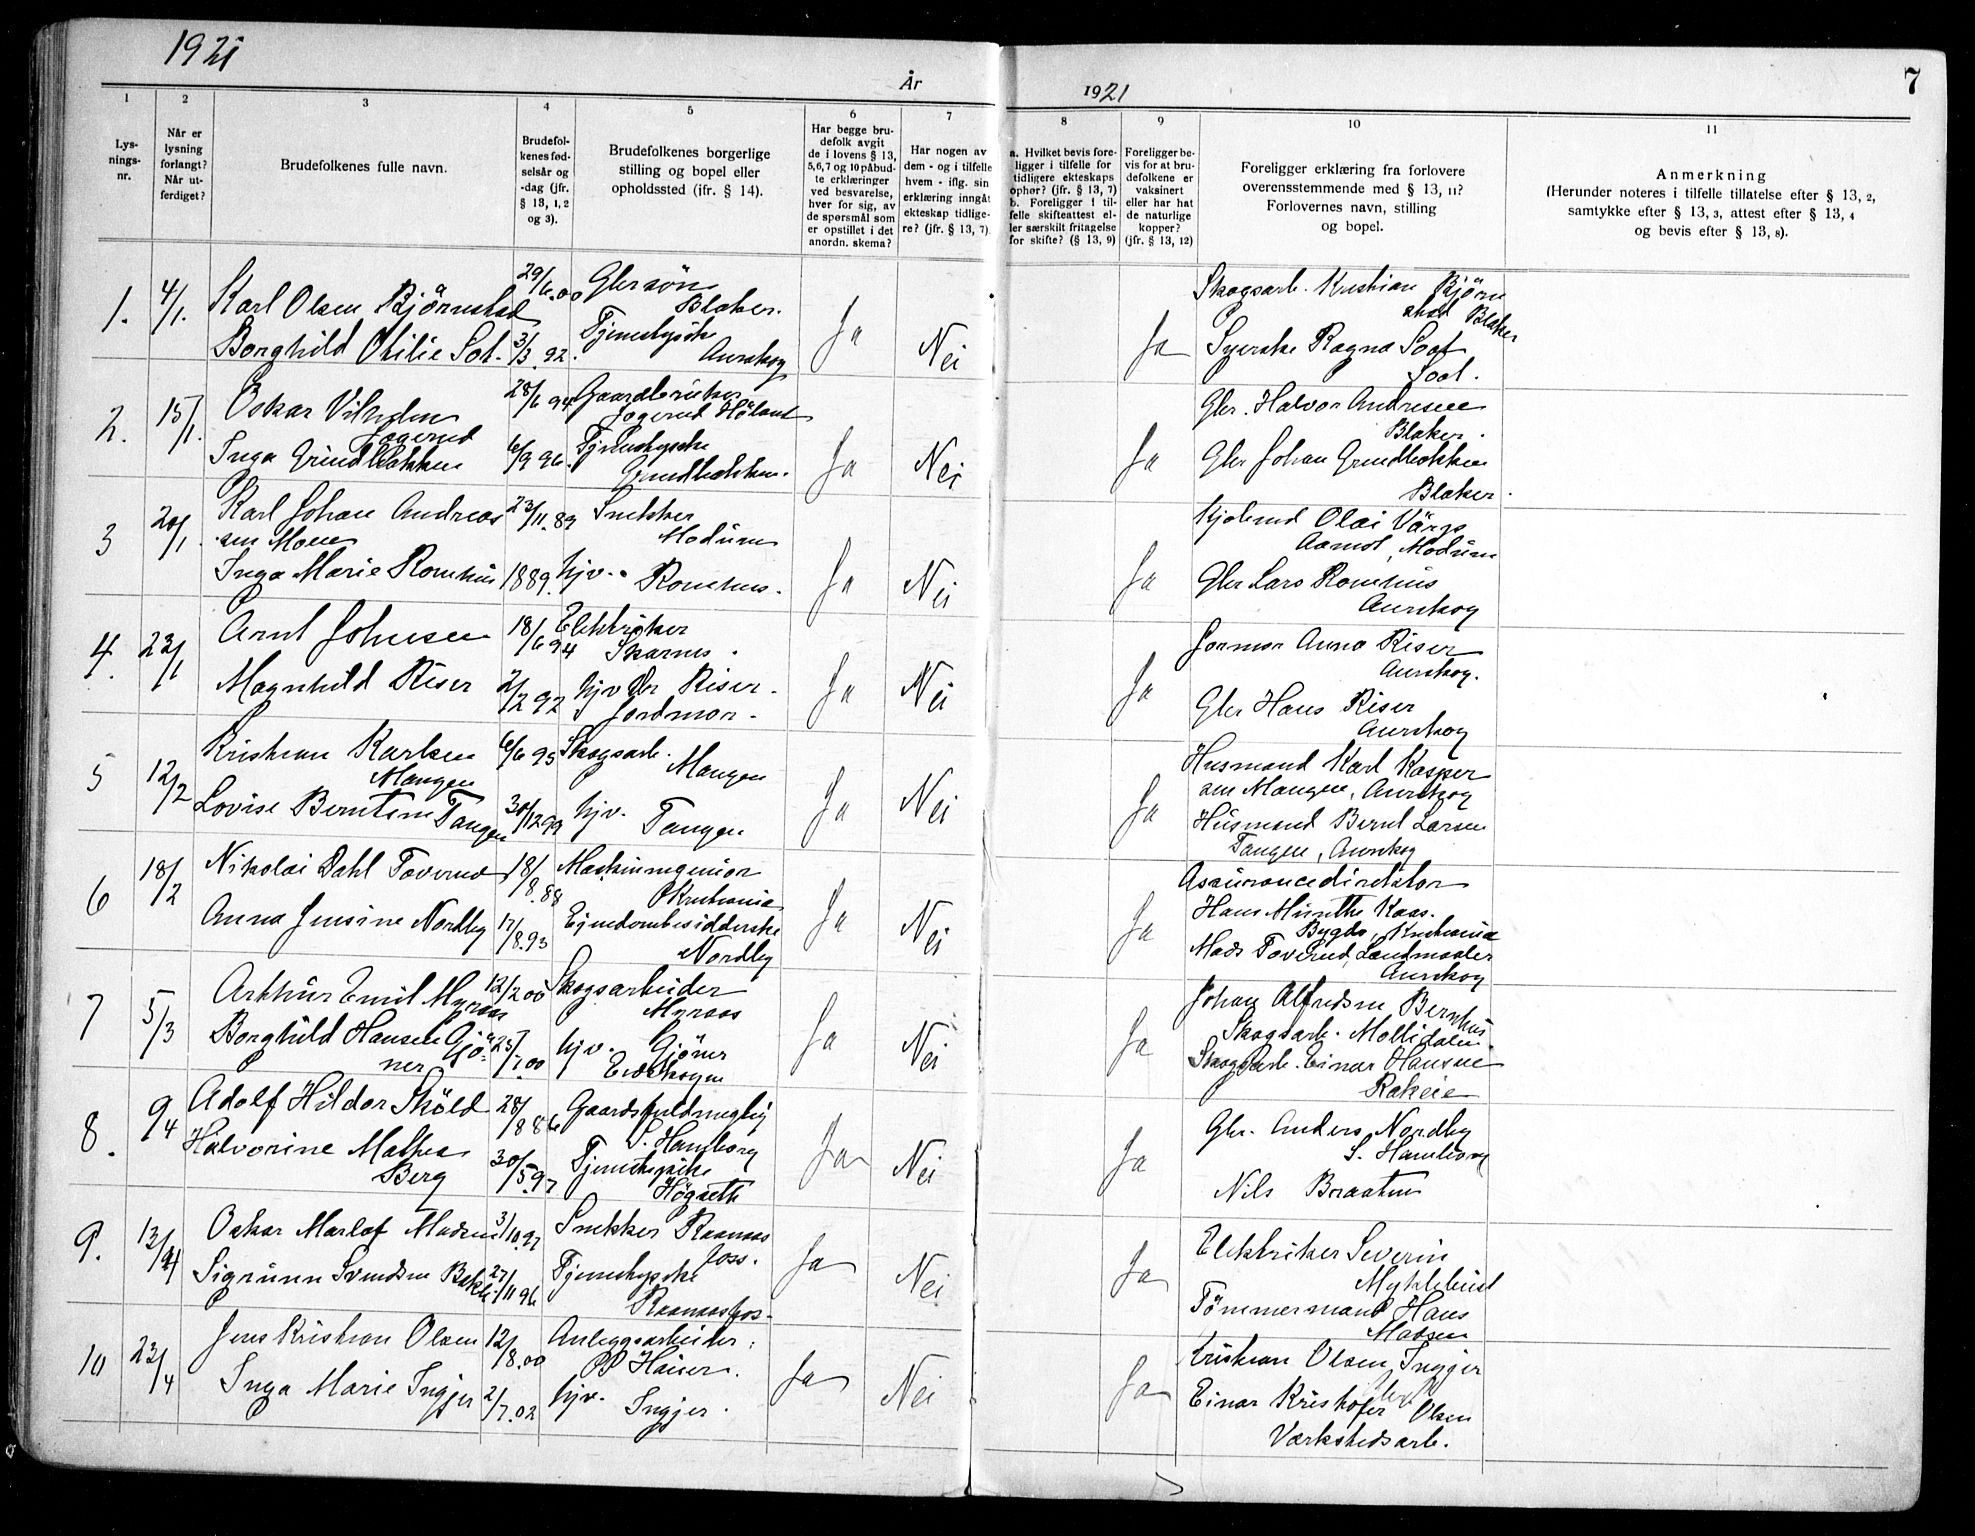 1921
År
1921
7
1 2 3 4 5 6 7 8 9 10 11
Lys-
nings-
nr.
Når er
lysning
forlangt?
Når ut-
ferdiget?
Brudefolkenes fulle navn.
Brudefol-
kenes fød-
selsår og
-dag (jfr.
§ 13, 1, 2
og 3).
Brudefolkenes borgerlige
stilling og bopel eller
opholdssted (jfr. § 14).
Har begge bru-
defolk avgit
de i lovens § 13,
5,6,7 og 10 påbud-
te erklæringer
ved besvarelse,
hver for sig, av
de spørsmål som
er opstillet i det
anordn. skema?
Har nogen av
dem - og i tilfelle
hvem - iflg. sin
erklæring inngåt
ekteskap tidlige-
re? (jfr. § 13, 7).
a. Hvilket bevis fore-
ligger i tilfelle for
tidligere ekteskaps
ophør? (jfr. § 13, 7)
b. Foreligger i til-
felle skifteattest el-
ler særskilt fritagelse
for skifte? (§ 13, 9)
Foreligger be-
vis for at bru-
defolkene er
vaksinert
eller har hat
de naturlige
kopper?
(jfr. § 13, 12)
Foreligger erklæring fra forlovere
overensstemmende med § 13, 11?
Forlovernes navn, stilling
og bopel.
Anmerkning
(Herunder noteres i tilfelle tillatelse efter § 13, 2,
samtykke efter § 13, 3, attest efter § 13, 4
og bevis efter § 13, 8).
1. 4/1.
Karl Olsen Björnstad
29/6.00
Gbr søn
Blaker.
Borghild Otilie Sot.
3/3.92.
Tjenestepike
Aurskog
Ja
Nei
Ja
Skogsarb. Kristian Björn
stad Blaker
Syerske Ragna Soot
Soot.
2. 15/1.
Oskar Vilhelm
Jogerud
28/6 94
Gaardbruker
Jogerud Höland
Inga Grindbakken
6/9 96.
Tjenestepike
Grindbakken.
Ja
Nei
Ja
Gbr. Halvor Andresen
Blaker.
Gbr Johan Grindbakken
Blaker.
3 20/1
Karl Johan Andreas
sen Moen
23/11.89
Snekker
Modum
Inga Marie Romhus
1889.
hjv.
Romhus.
Ja
Nei
Ja
Olai
Aamot, Modum
Gbr Lars Romhus
Aurskog
4. 23/1
Arnt Johnsen
18/6 94
Elektriker
Skarnes.
Magnhild Riser
2/2 92
hjv Riser.
Jordmor.
Ja
Nei
Ja
Jormor Anna Riser
Aurskog.
Gbr Hans Riser
Aurskog
5 12/2
Kristian Karlsen
Mangen
6/6 95
Skogsarb.
Mangen
Lovise Berntsen Tangen
30/12 99
hjv.
Tangen
Ja
Nei
Ja
Husmand Karl Kasper
sen Mangen, Aurskog
Husmand Bernt Larsen
Tangen, Aurskog
6 18/2
Nikolai Dahl Toverud
18/8.88
Maskiningeniør
Kristiania
Anna Jensine Nordby
17/8.93
Ejendombesidderske
Nordby
Ja
Nei
Ja
Assurancedirektør
Hans Munthe Kaas.
Bygdø, Kristiania
Mads Toverud, Landmaaler
Aurskog
7 5/3
Arthur Emil Myraas
12/2 00
Skogsarbeider
Myraas
Borghild Hansen Gjö-
ner
25/7.00
hjv. Gjöner
Eidskogen
Ja
Nei
Ja
Johan Alfredsen Bernhus
Skogsarb.
Skogsarb. Einar Hansen
Rakeie
8. 9/4
Adolf Hildor Sköld
28/8 86
Gaardsfuldmegtig
S. Hamborg
Halvorine Mathea
Berg
30/5 97
Tjenestepike
Högseth
Ja
Nei
Ja
Gbr. Anders Nordby
S. Hamborg
Nils Braaten
9. 13/4
Oskar Marlof Madsen
3/10.97
Snekker Raanaas
foss.
Sigrunn Svendsen Bakke
27/11 96
Tjenestepike
Raanaasfos.
Ja
Nei
Ja
Elektriker Severin
Myklebust
Tömmermand Hans
Madsen
10 23/4
Jens Kristian Olsen
12/8.00
Anleggsarbeider.
Inga Marie Ingjer
2/7.02
hjv.
Ingjer.
Ja
Nei
Ja
Kristian Olsen Ingjer
Einar Kristofer Olsen
Værkstedsarb.